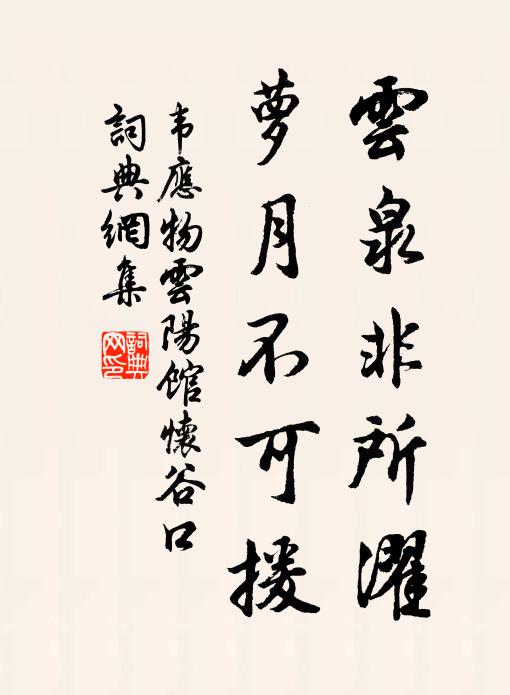 雲泉非所濯
萝月不可援
韦應物雲陽馆懷谷口
詞典網集
詞典
网印